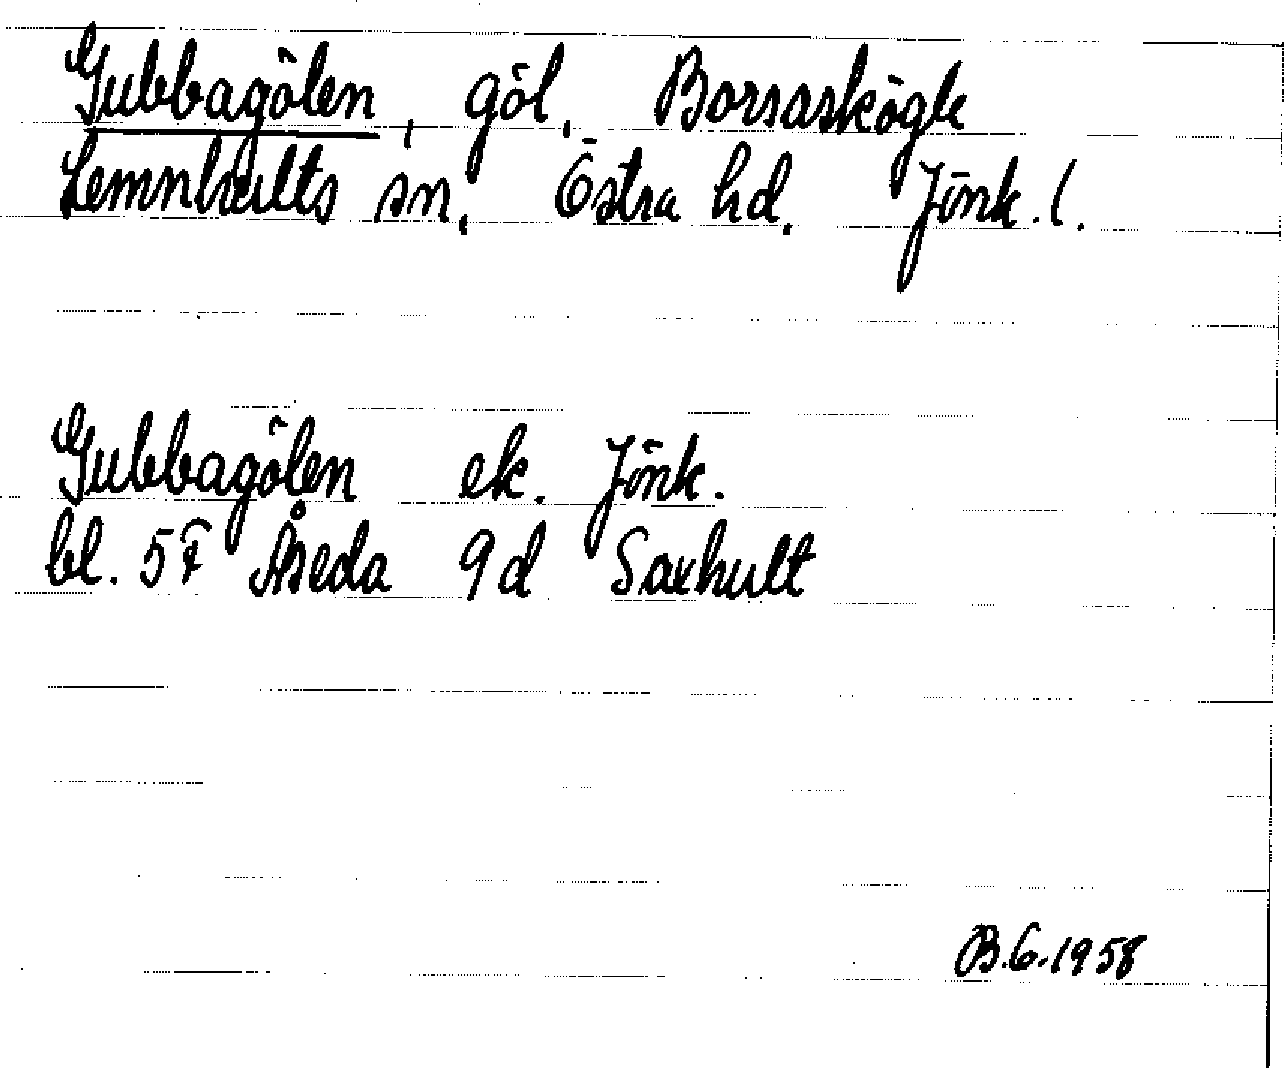 Gubbagölen, göl, Borsaskögle
Lemnhults sn, Östra hd. Jönk. l.
Gubbagölen ek. Jönk.
bl. 5 F Åseda 9 d Saxhult
B.G. 1958